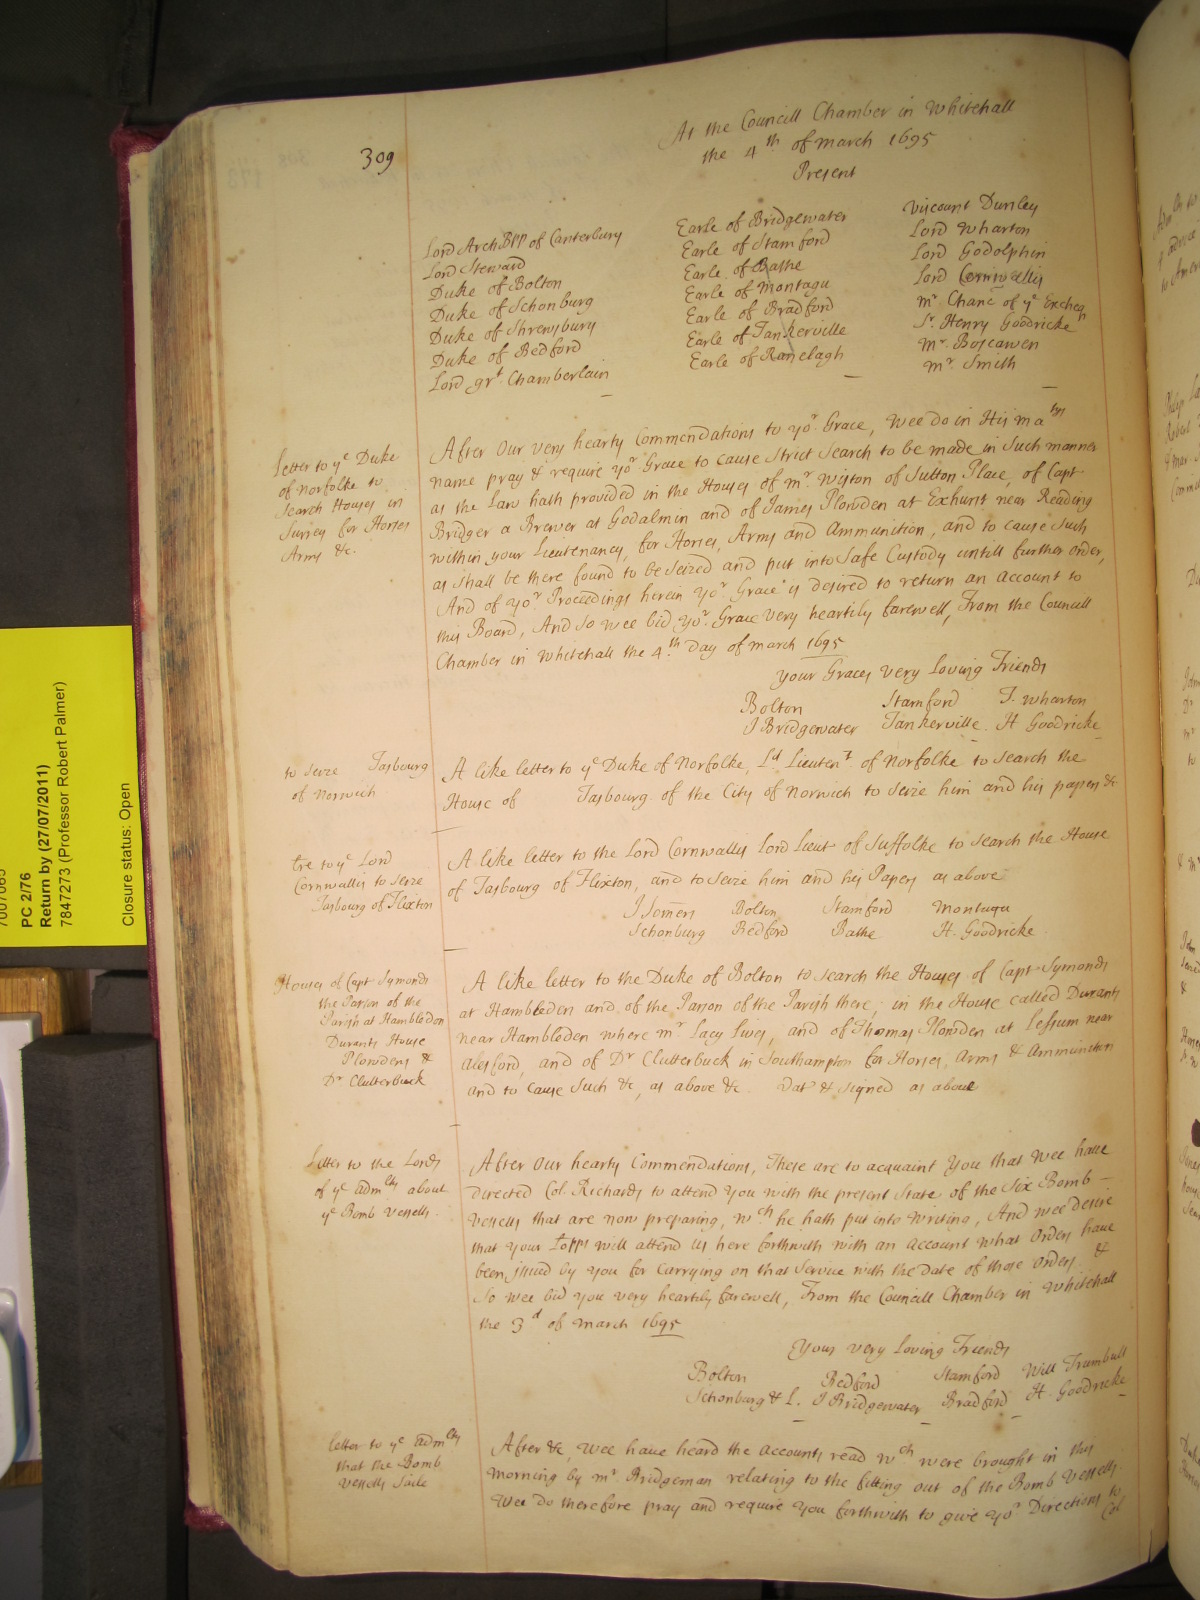 309
At the Councill Chamber in Whitehall
the 4th of March 1695
Present
Lord ArchBpp of Canterbury
Lord Steward
Duke of Bolton
Duke of Schonburg
Duke of Shrewsbury
Duke of Bedford
Lord grt Chamberlain
Earle of Bridgewater
Earle of Stamford
Earle of Bathe
Earle of Montagu
Earle of Bradford
Earle of Tankerville
Earle of Ranelagh
Viscount Dursley
Lord Wharton
Lord Godolphin
Lord Cornwallis
Mr Chanc of ye Excheq
Sr Henry Goodricke
Mr Boscawen
Mr Smith
Letter to ye Duke
of Norfolke to
Search Houses in
Surrey for Horses
Arms &c.
After Our very hearty Commendations to yor Grace, Wee do in His Matys
name pray & require yor Grace to cause Strict Search to be made in Such manner
as the Law hath provided in the Houses of Mr Wiston of Sutton Place, of Capt
Bridger a Brewer at Godalmin and of James Plowden at Exhurst near Reading
within your Lieutenancy, for Horses, Arms and Ammunition, and to cause Such
as shall be there found to be Seized and put into Safe Custody untill further Order,
And of yor Proceedings herein yor Grace is desired to return an Account to
this Board, And so wee bid yor Grace very heartily farewell, From the Councill
Chamber in Whitehall the 4th Day of March 1695
Your Graces very Loving Friends
Bolton Stamford T. Wharton
J Bridgewater Tankerville H Goodricke
to Seize Tasbourg
of Norwich
A like letter to ye Duke of Norfolke, Ld Lieutent of Norfolke to Search the
House of Tasbourg of the City of Norwich to Seize him and his papers &c
tre to ye Lord
Cornwallis to Seize
Tasbourg of Flixton
A like letter to the Lord Cornwallis Lord Lieut of Suffolke to Search the House
of Tasbourg of Flixton, and to Seize him and his Papers as above
J Somers Bolton Stamford Montagu
Schonburg Bedford Bathe H. Goodricke
Houses of Capt Symonds
the Parson of the
Parish at Hambledon
Durants House
Plowdens &
Dr Clutterbuck
A like letter to the Duke of Bolton to Search the Houses of Capt Symonds
at Hambleden and of the Parson of the Parish there; in the House called Durants
near Hambleden where Mr Lacy lives, and of Thomas Plowden at Lessum near
Alesford, and of Dr Clutterbuck in Southampton for Horses, Arms & Ammunition
and to cause Such &c, as above &c. Dat & Signed as above
Letter to the Lords
of ye Admlty about
ye Bomb Vessells
After Our hearty Commendations, These are to acquaint You that Wee have
directed Col. Richards to attend You with the present State of the Six Bomb
Vessells that are now preparing, wch he hath put into Writing, And wee desire
that your Lopps will attend Us here forthwith with an Account what Orders have
been issued by you for Carrying on that Service with the Date of those Orders &
So wee bid you very heartily farewell, From the Councill Chamber in Whitehall
the 3d of March 1695
Your very Loving Friends
Bolton Bedford Stamford Will Trumbull
Schonburg & L. J Bridgewater Bradford H. Goodricke
letter to ye Admlty
that the Bomb
Vessells Saile
After &c, Wee have heard the Accounts read wch were brought in this
Morning by Mr Bridgeman relating to the fitting out of the Bomb Vessells.
Wee do therefore pray and require You forthwith to give yor Directions to
Col
PC 2/76
Return by (27/07/2011)
7847273 (Professor Robert Palmer)
Closure status: Open